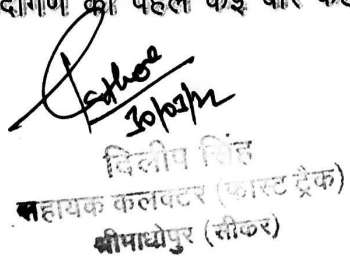 की पहले कई बार
30/03/22
दिलीप सिंह
सहायक कलक्टर (फास्ट ट्रैक)
श्रीमाधोपुर (सीकर)